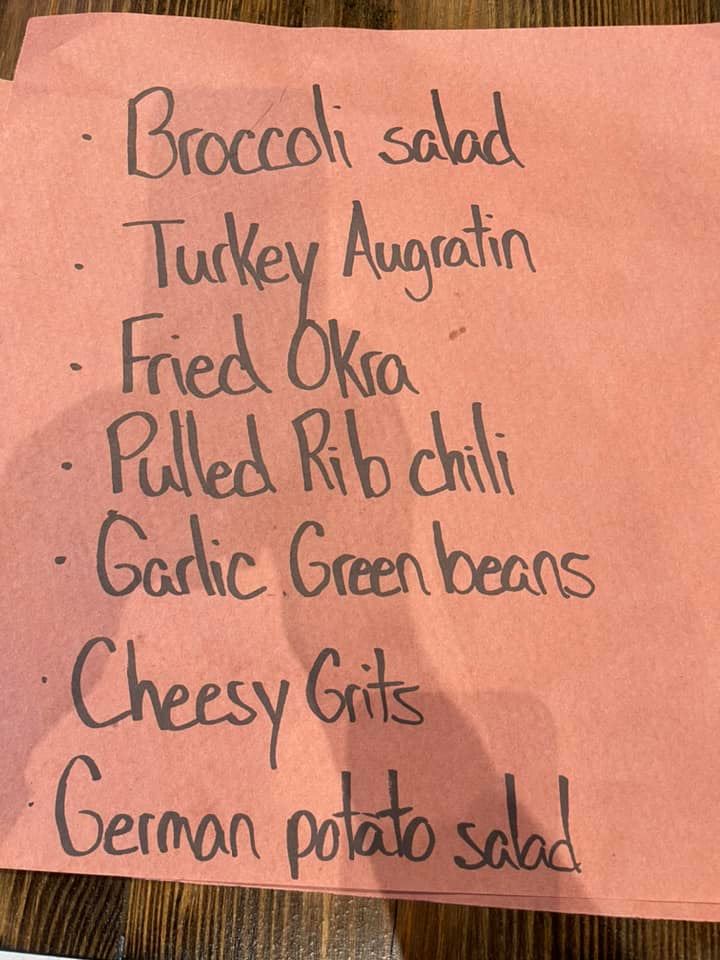 · Broccoli salad
· Turkey Augratin
· Fried Okra
· Pulled Rib chili
· Garlic Green beans
· Cheesy Grits
· German potato salad